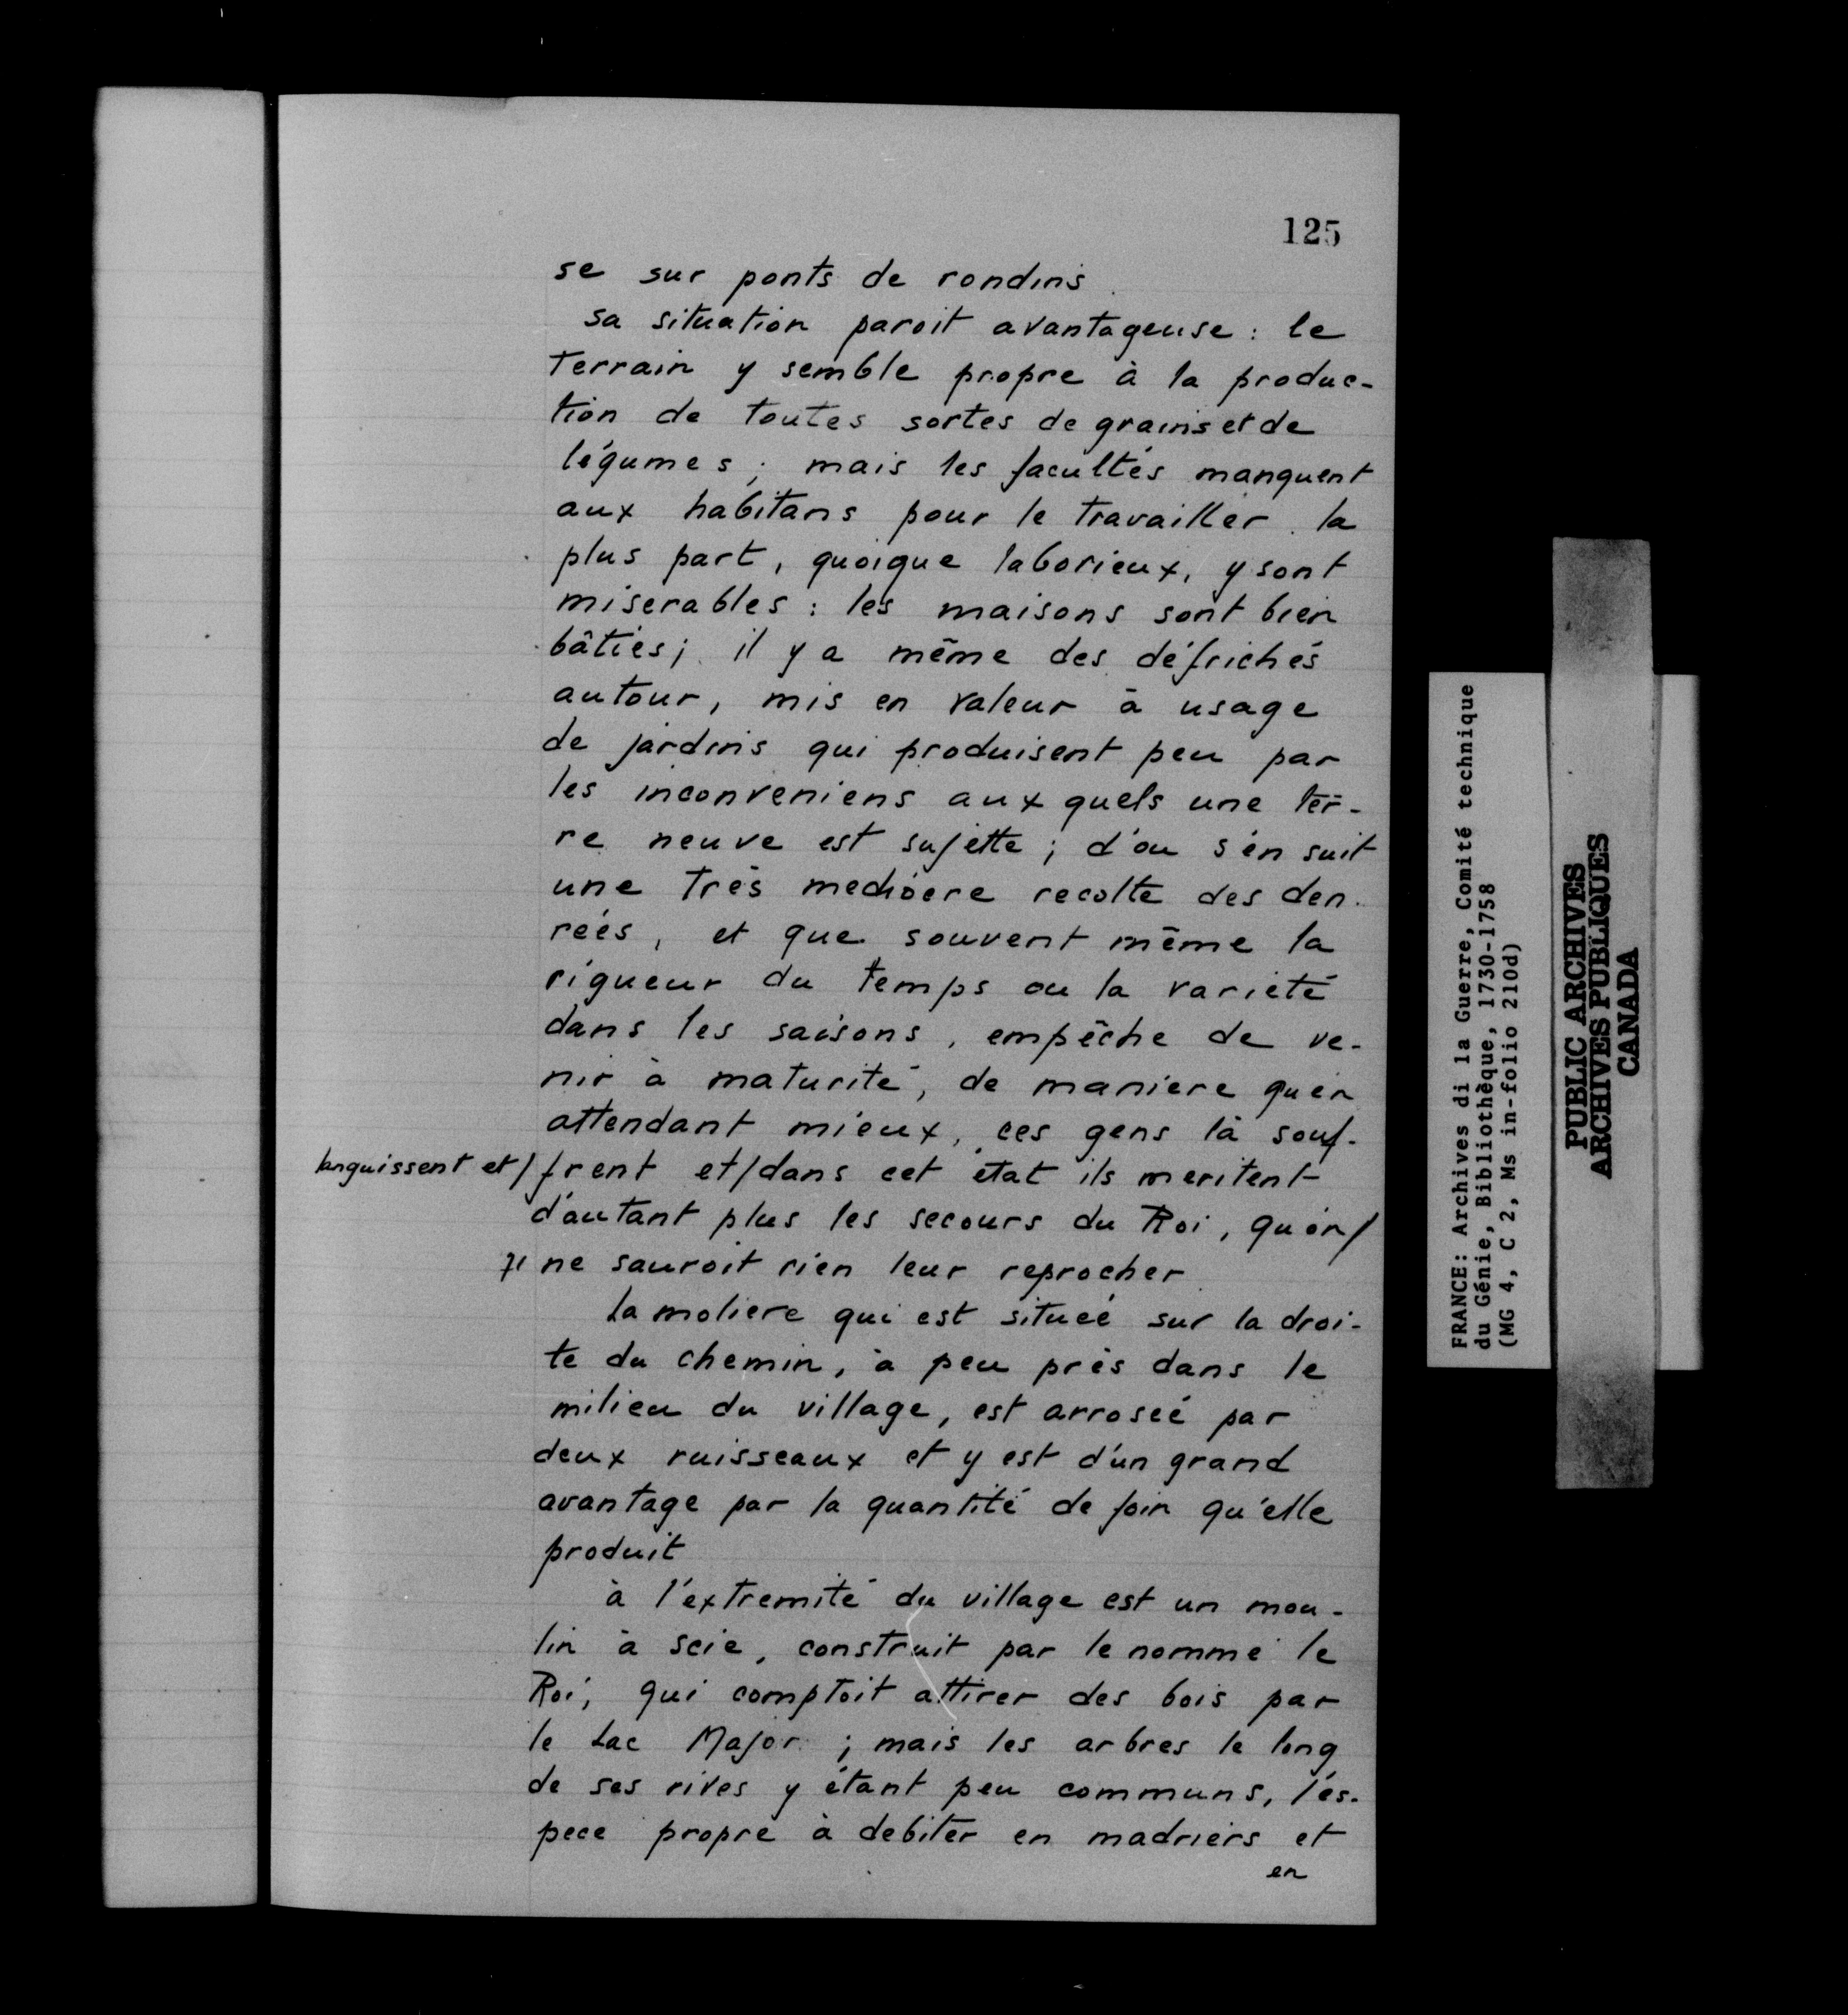 125
se sur ponts de rondins
sa situation paroit avantageuse : le
terrain y semble propre à la produc-
tion de toutes sortes de grains et de
légumes ; mais les facultés manquent
aux habitans pour le travailler . la
plus part , quoique laborieux , y sont
miserables : les maisons sont bien
bâties ; il y a même des défrichés
autour , mis en valeur à usage
de jardins qui produisent peu par
les inconveniens aux quels une ter-
re neuve est sujette ; d'ou s'en suit
une très mediocre recolte des den-
reés , et que souvent même la
rigueur du temps ou la varieté
dans les saisons , empêche de ve-
nir à maturité , de maniere qu'en
attendant mieux , ces gens là souf-
languissent et / frent et / dans cet état ils meritent
d'autant plus les secours du Roi , qu'on /
ne sauroit rien leur reprocher
La moliere qui est situeé sur la droi-
te du chemin , à peu près dans le
milieu du village , est arroseé par
deux ruisseaux et y est d'un grand
avantage par la quantité de foin qu'elle
produit
à l'extremité du village est un mou-
lin à scie , construit par le nommé le
Roi , qui comptoit attirer des bois par
le Lac Major ; mais les arbres le long
de ses rives y étant peu communs , l'és-
pece propre à debiter en madriers et
en
FRANCE: Archives di la Guerre, Comité technique
du Génie, Bibliothèque, 1730-1758
(MG 4, C 2, Ms in-folio 210d)
PUBLIC ARCHIVES
ARCHIVES PUBLIQUES
CANADA